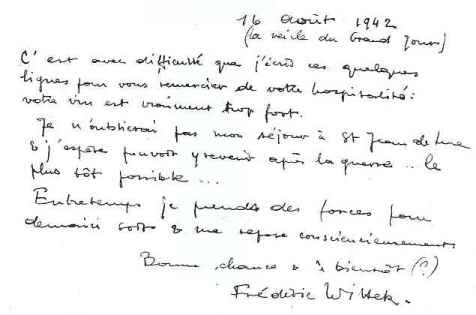 16 Août 1942
(la veille du Grand Jour)
C'est avec difficulté que j'écris ces quelques
lignes pour vous remercier de votre hospitalité:
votre vin est vraiment trop fort.
Je n'oublierai pas mon séjour à St Jean de Luz
& j'espère pouvoir y revenir après la guerre .. le
plus tôt possible ...
Entretemps je prends des forces pour
demain soir & me repose consciencieusement
Bonne chance & à bientôt (?)
Frédéric Wittek.